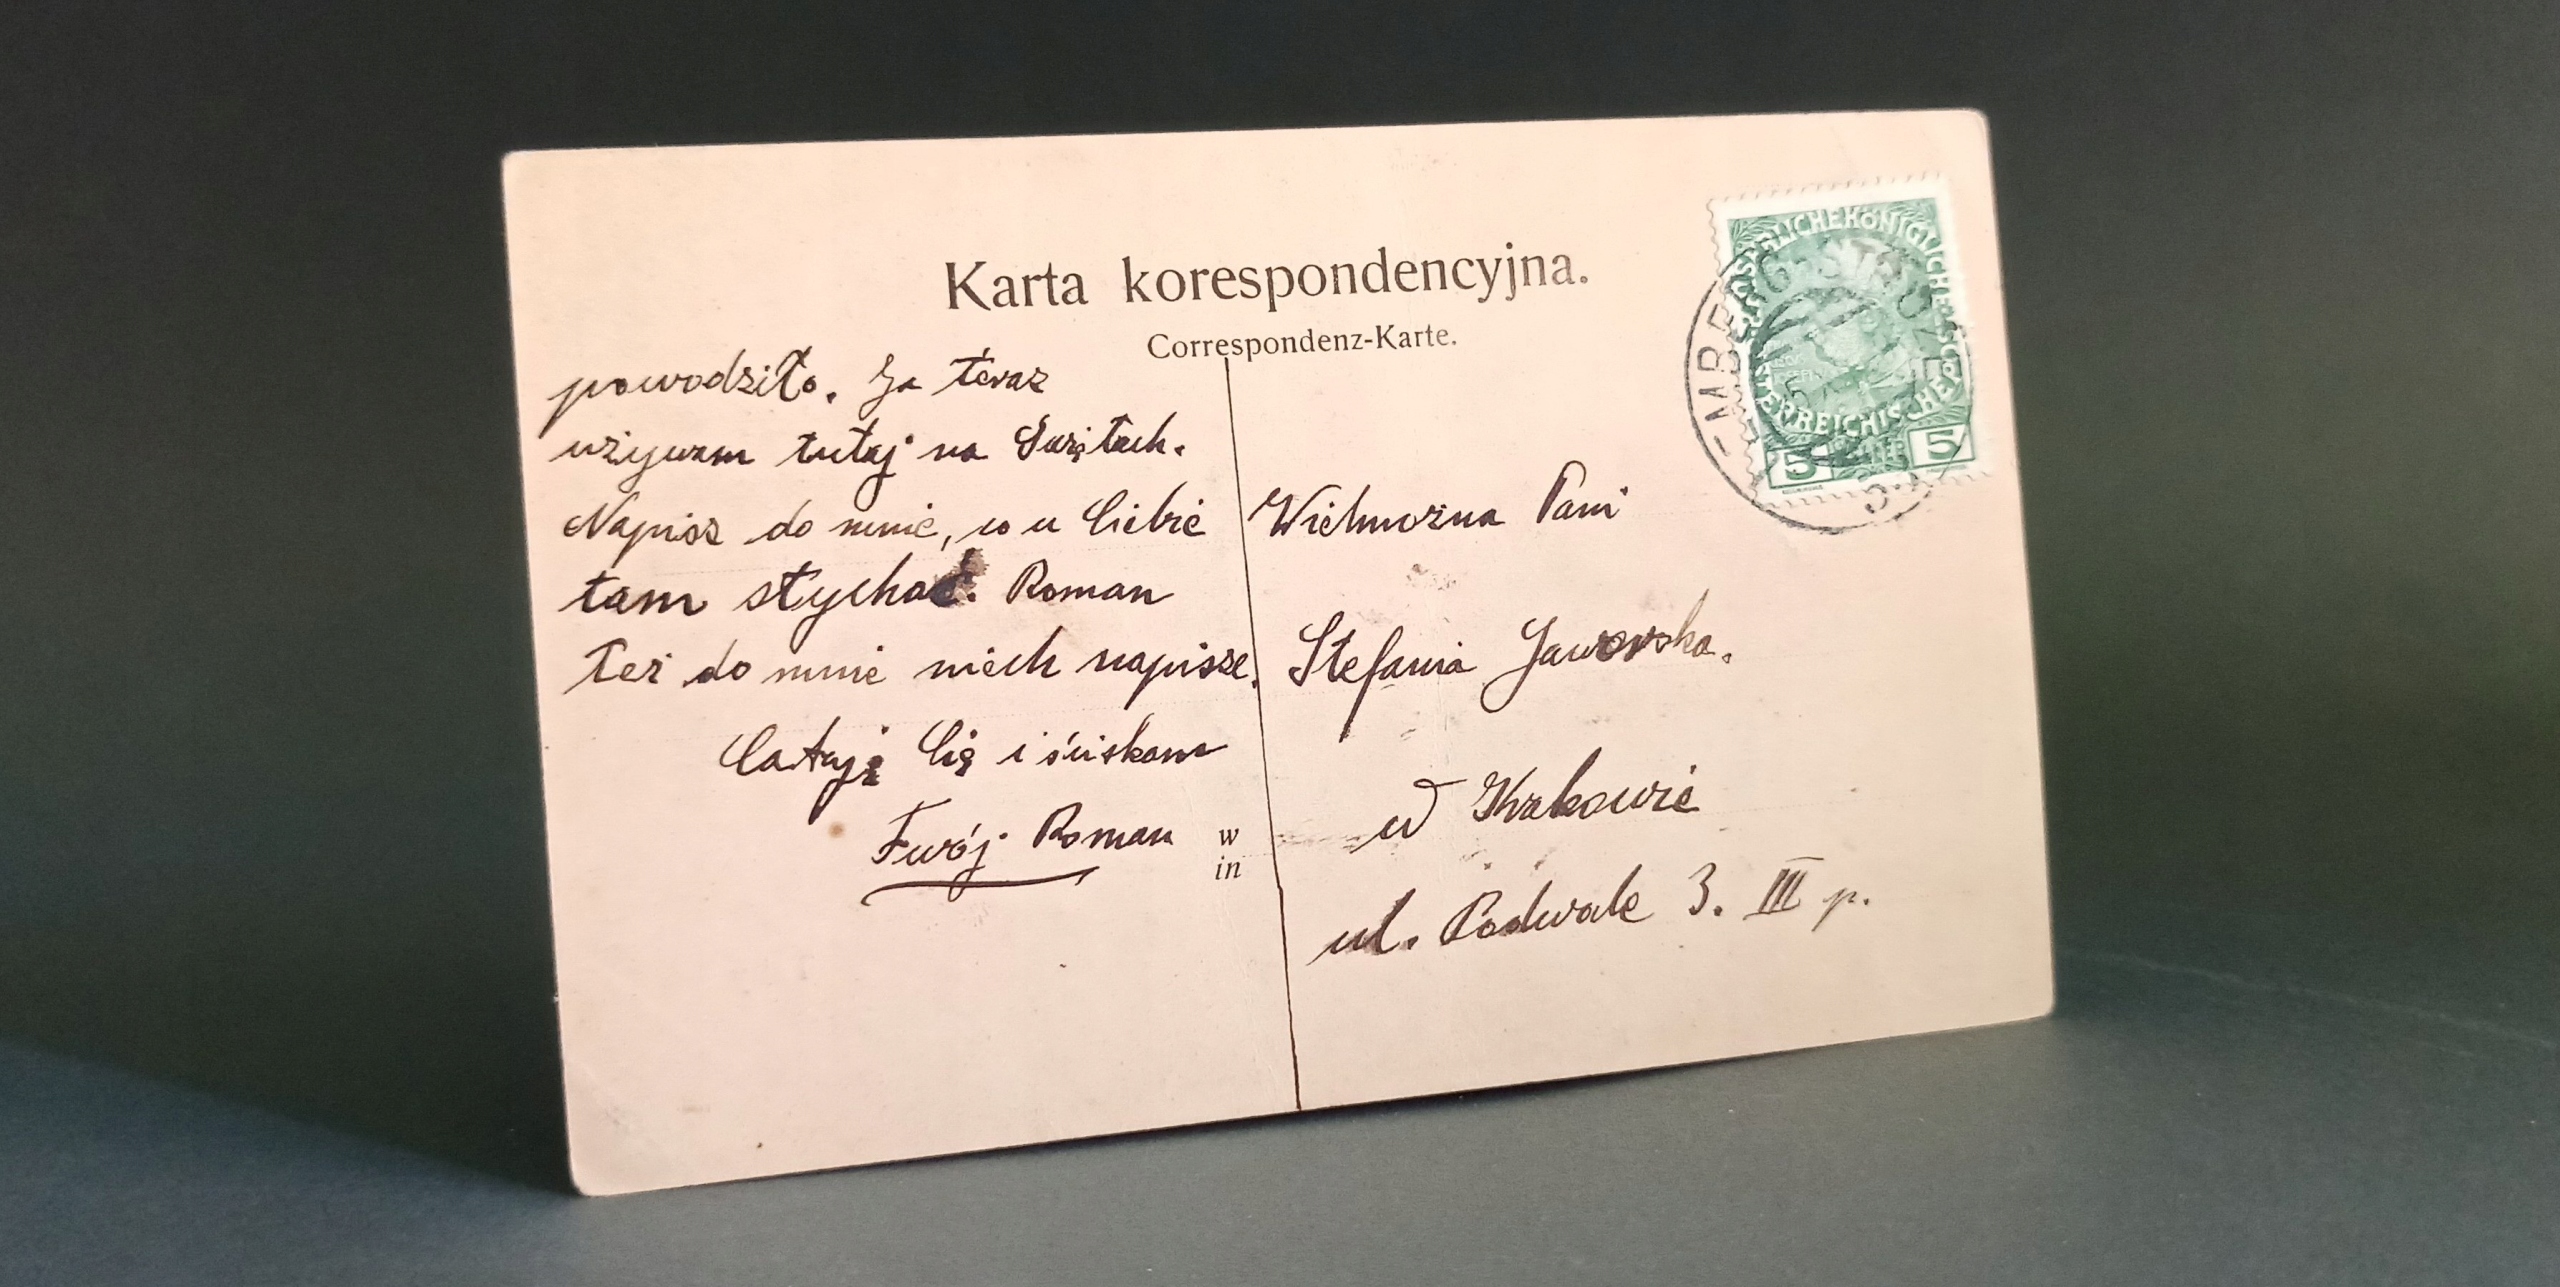 Karta korespondencyjna.
Correspondenz-Karte.
powodziło. Ja teraz
używam tutaj na Świętach.
Napisz do mnie, co u Ciebie
tam słychać. Roman
też do mnie niech napisze.
Całuję Cię i ściskam
Twój Roman
w
in
Wielmożna Pani
Stefania Jaworska.
w Krakowie
ul. Podwale 3. III p.
KÖNIGLICHE
5 5